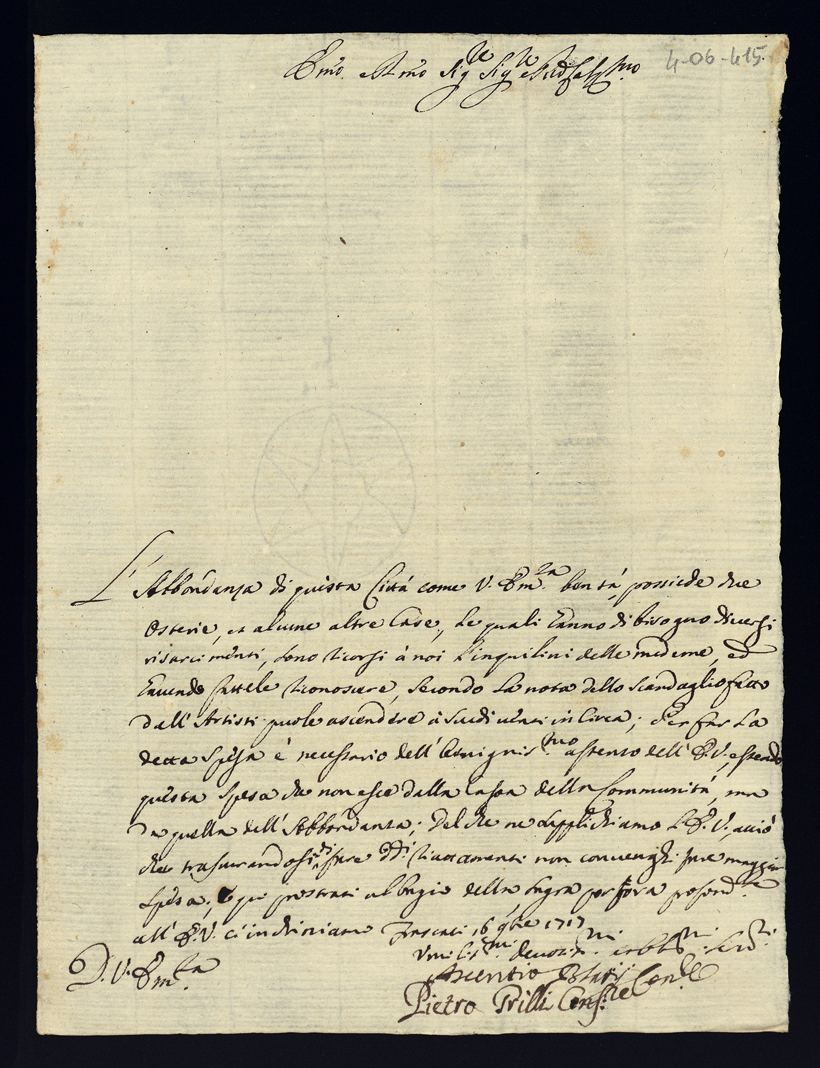 Emo. e Rmo Sigre Sigre e Pad. Col.mo
4-06-415.
L'Abbondanza di questa Città come V. Em.za ben sà, possiede due
Osterie, et alcune altre Case, le quali hanno di bisogno diversi
risarcimenti, sono ricorsi à noi l'inquilini delle medeme, ed
havendo fattele riconoscere, secondo la nota dello scandaglio fatto
dall'Artisti puole ascendere à scudi venti in circa; Per far la
detta spesa è necessario dell'benignis.mo assenso dell'E.V., essendo
questa spesa che non esce dalla Cassa della Communità, ma
da quella dell'Abbondanza; Del che ne supplichiamo l'E.V., acciò
che trascurandosi di fare dd.i risarcimenti non convenghi fare maggior
spesa; e qui prostrati al bagio della sagra porpora profond.te
all'E.V. c'inchiniamo Frascati 16 9bre 1717
D. V. Em.za
Umiliss.mi devotis.mi et obb.mi Ser.ri
Ascentio Conf.le
Pietro Trilli Conf.le